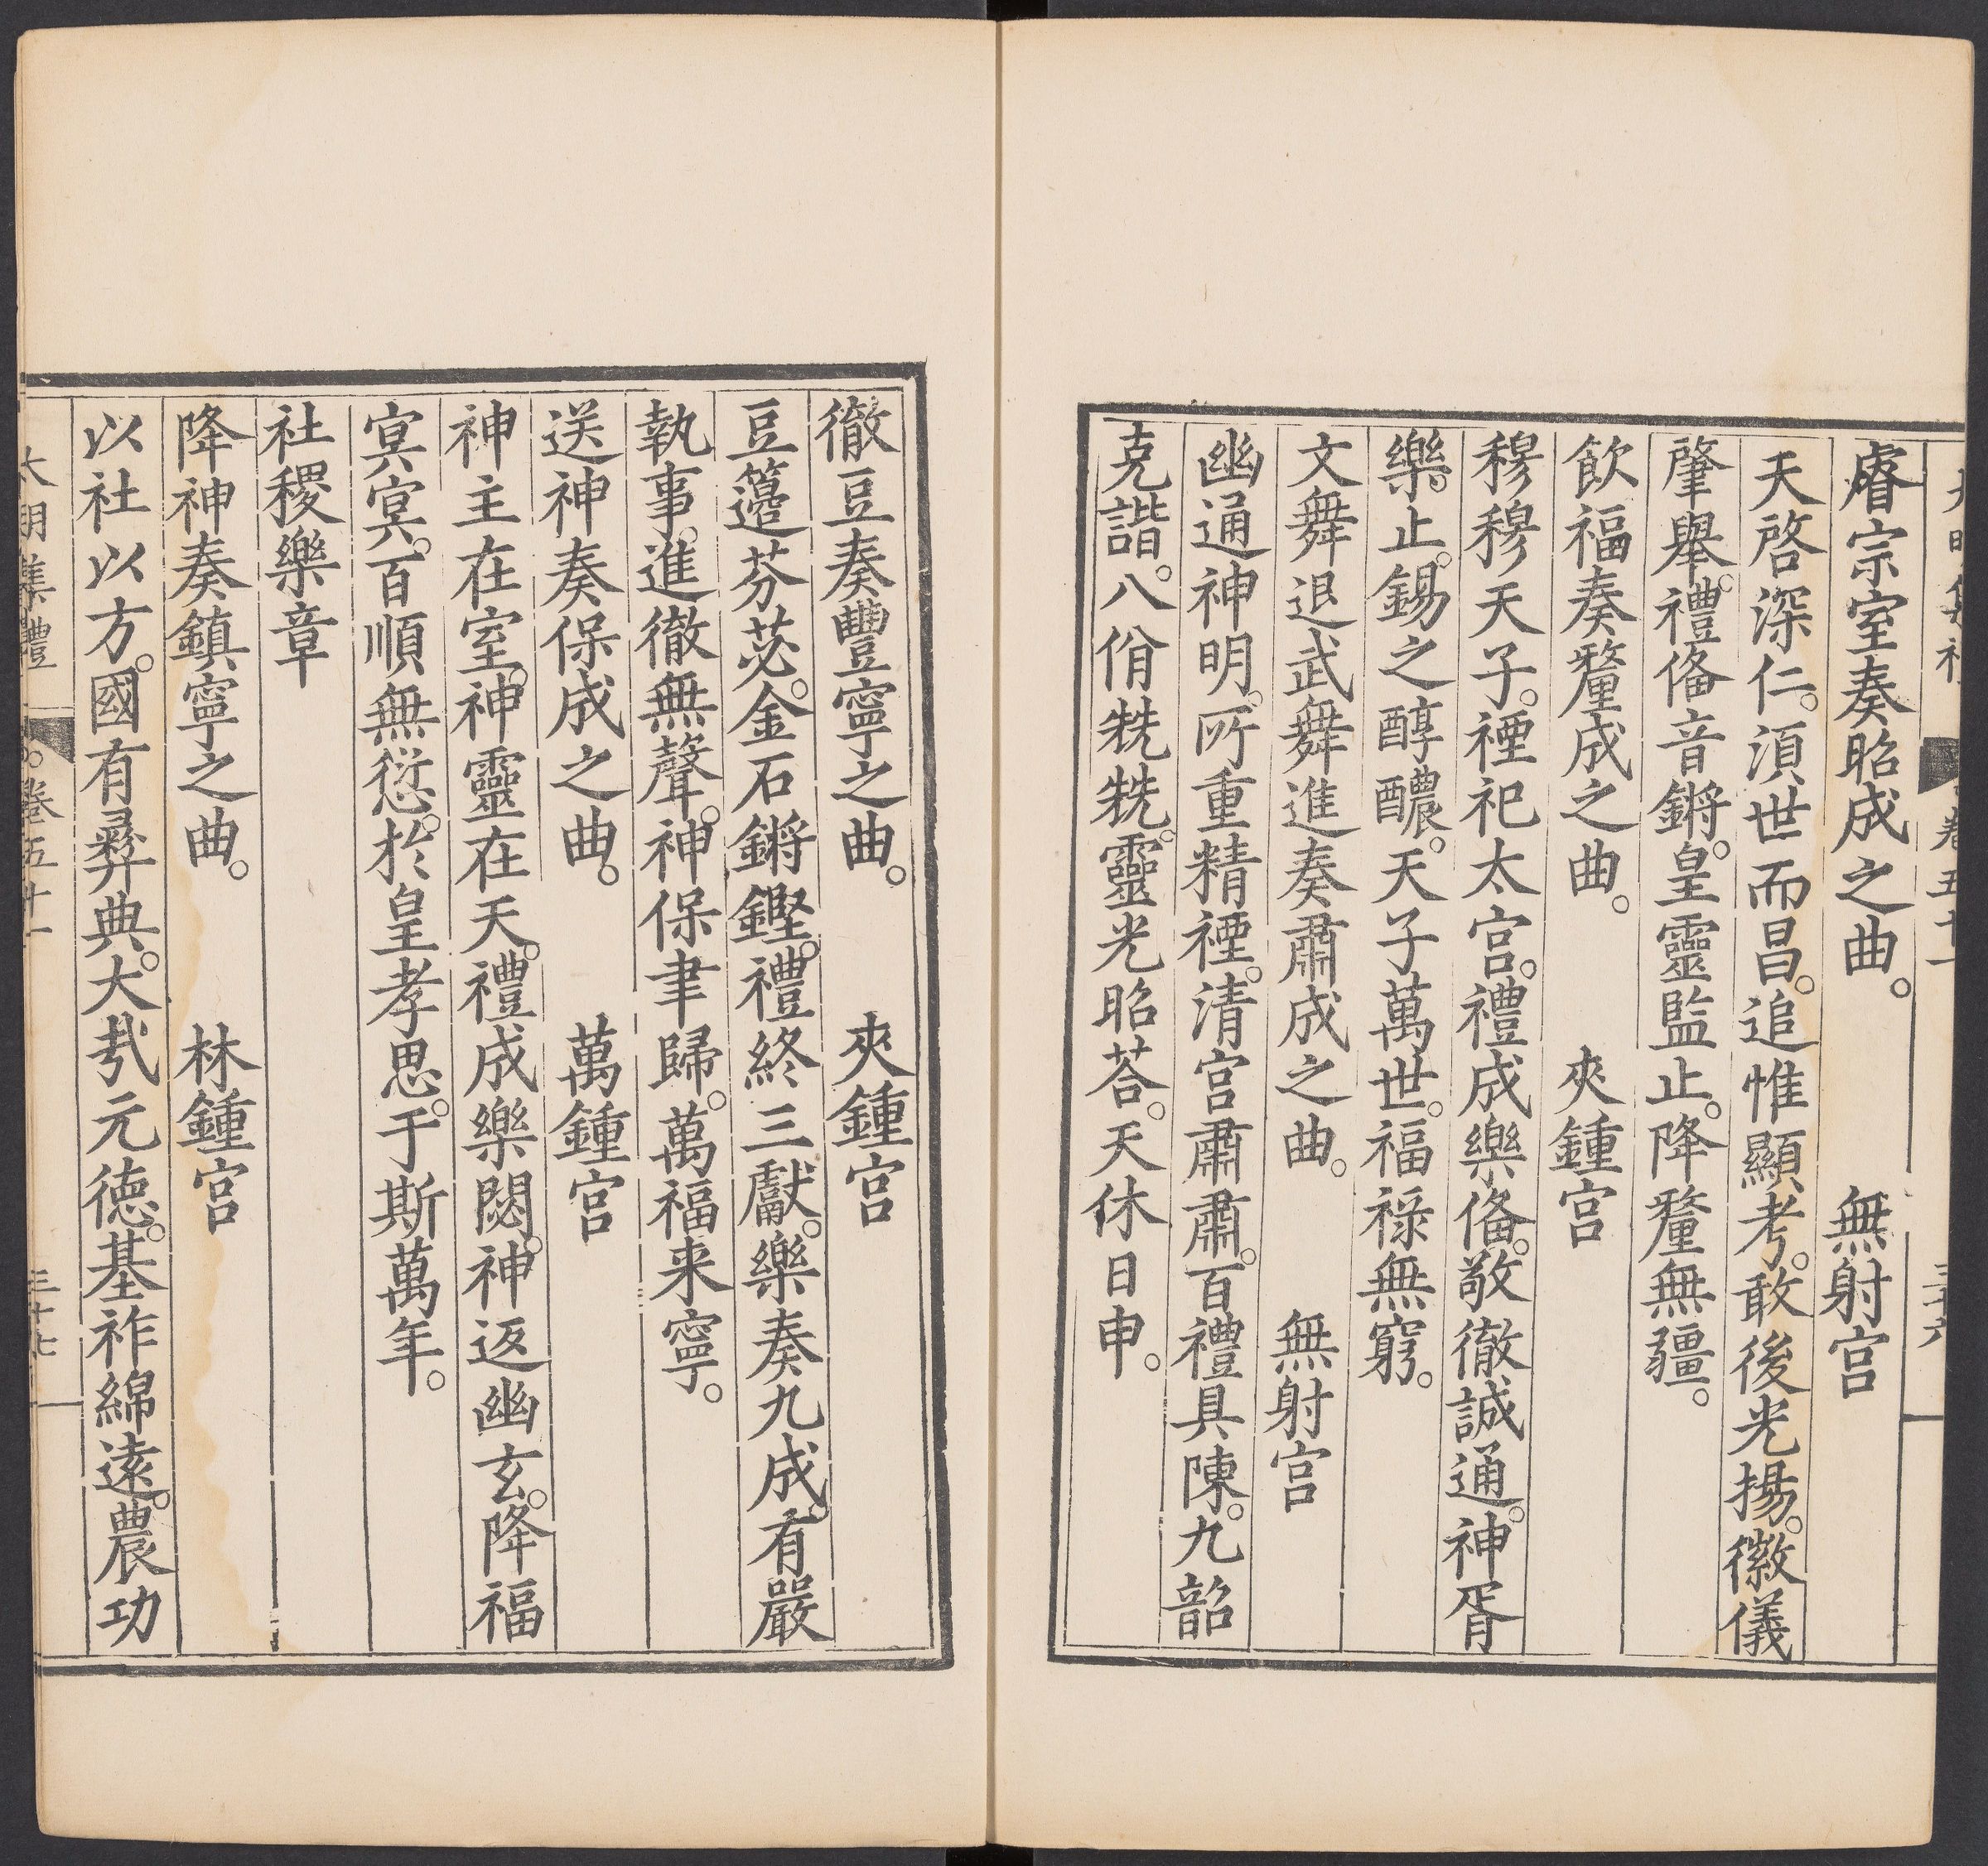 大明集禮 卷五十一 三十六
睿宗室奏昭成之曲。 無射宮
天啓深仁。湏世而昌。追惟顯考。敢後光揚。徽儀
肇舉。禮俻音鏘。皇靈監止。降釐無疆。
飲福奏釐成之曲。 夾鍾宮
穆穆天子。禋祀太宮。禮成樂俻。敬徹誠通。神胥
樂止。錫之醇醲。天子萬世。福祿無窮。
文舞退武舞進奏肅成之曲。 無射宮
幽通神明。所重精禋。清宮肅肅。百禮具陳。九韶
克諧。八佾兟兟。靈光昭荅。天休日申。
徹豆奏豐寧之曲。 夾鍾宮
豆籩芬苾。金石鏘鏗。禮終三獻。樂奏九成。有嚴
執事。進徹無聲。神保聿歸。萬福来寧。
送神奏保成之曲。 萬鍾宮
神主在室。神靈在天。禮成樂閟。神返幽玄。降福
冥冥。百順無愆。於皇孝思。于斯萬年。
社稷樂章
降神奏鎮寧之曲。 林鍾宮
以社以方。國有彝典。大㢤元德。基祚綿遠。農功
大明集禮 卷五十一 三十七